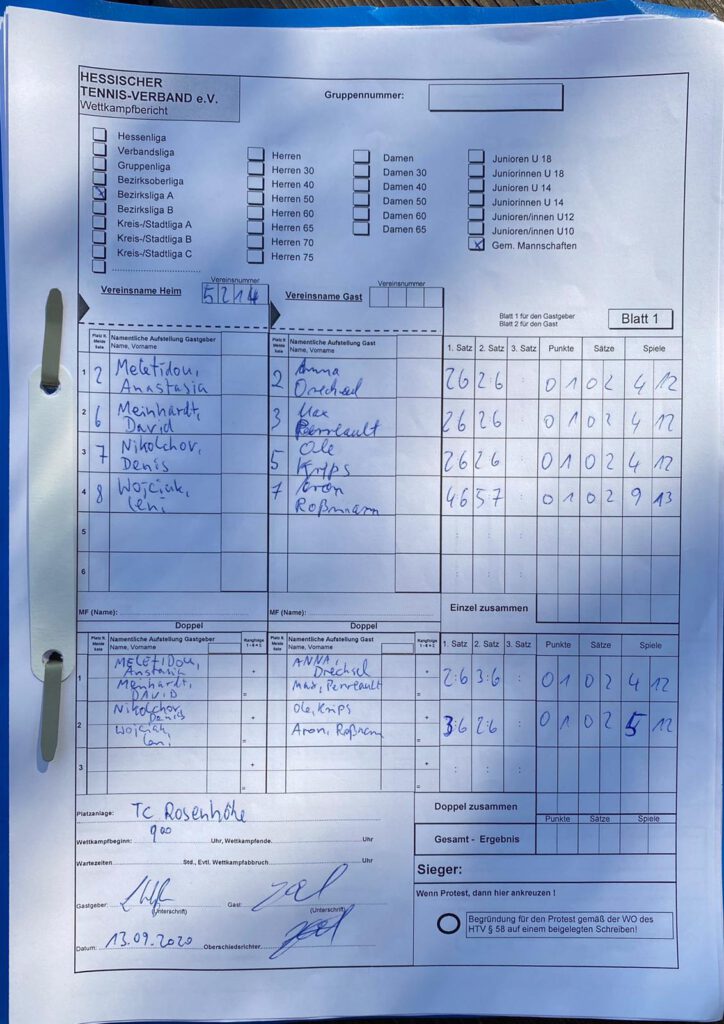 HESSISCHER
TENNIS-VERBAND e.V.
Wettkampfbericht
Gruppennummer:
Hessenliga
Verbandsliga
Gruppenliga
Bezirksoberliga
Bezirksliga A
Bezirksliga B
Kreis-/Stadtliga A
Kreis-/Stadtliga B
Kreis-/Stadtliga C
Herren
Herren 30
Herren 40
Herren 50
Herren 60
Herren 65
Herren 70
Herren 75
Damen
Damen 30
Damen 40
Damen 50
Damen 60
Damen 65
Junioren U 18
Juniorinnen U 18
Junioren U 14
Juniorinnen U 14
Junioren/innen U12
Junioren/innen U10
Gem. Mannschaften
Vereinsname Heim
Vereinsnummer
5214
Vereinsname Gast
Vereinsnummer
Blatt 1 für den Gastgeber
Blatt 2 für den Gast
Blatt 1
Platz lt. Melde liste Namentliche Aufstellung Gastgeber Name, Vorname
Namentliche Aufstellung Gast Name, Vorname
1. Satz 2. Satz 3. Satz Punkte Sätze Spiele
1 2 Meletidou, Anastasia 2 Anna 26 2:6 0 1 0 2 4 12
2 6 Meinhardt, David 3 Perreault 26 26 0 1 0 2 4 12
3 7 Nikolchov, Denis 5 Ole Krips 26 26 0 1 0 2 4 12
4 8 Wojciak, Leni 7 Aron Roßmann 46 57 0 1 0 2 9 13
5
6
MF (Name):
MF (Name):
Einzel zusammen
Doppel
Doppel
Namentliche Aufstellung Gastgeber Name, Vorname Rangfolge
Namentliche Aufstellung Gast Name, Vorname Rangfolge
1. Satz 2. Satz 3. Satz Punkte Sätze Spiele
1 MELETIDOU, Anstasia ANNA, Drechsel 2:6 3:6 0 1 0 2 4 12
Meinhardt, DAVID Max, Perreault
2 Nikolchov, Denis Ole, Krips 3:6 2:6 0 1 0 2 5 12
Wojciak, Leni. Aron, Roßmann
3
Platzanlage: TC Rosenhöhe
Wettkampfbeginn: 9 00 Uhr, Wettkampfende. Uhr
Wartezeiten Std., Evtl. Wettkampfabbruch Uhr
Gastgeber: (Unterschrift) Gast: (Unterschrift)
Datum: 13.09.2020 Oberschiedsrichter
Doppel zusammen
Punkte Sätze Spiele
Gesamt - Ergebnis
Sieger:
Wenn Protest, dann hier ankreuzen !
Begründung für den Protest gemäß der WO des
HTV § 58 auf einem beigelegten Schreiben!